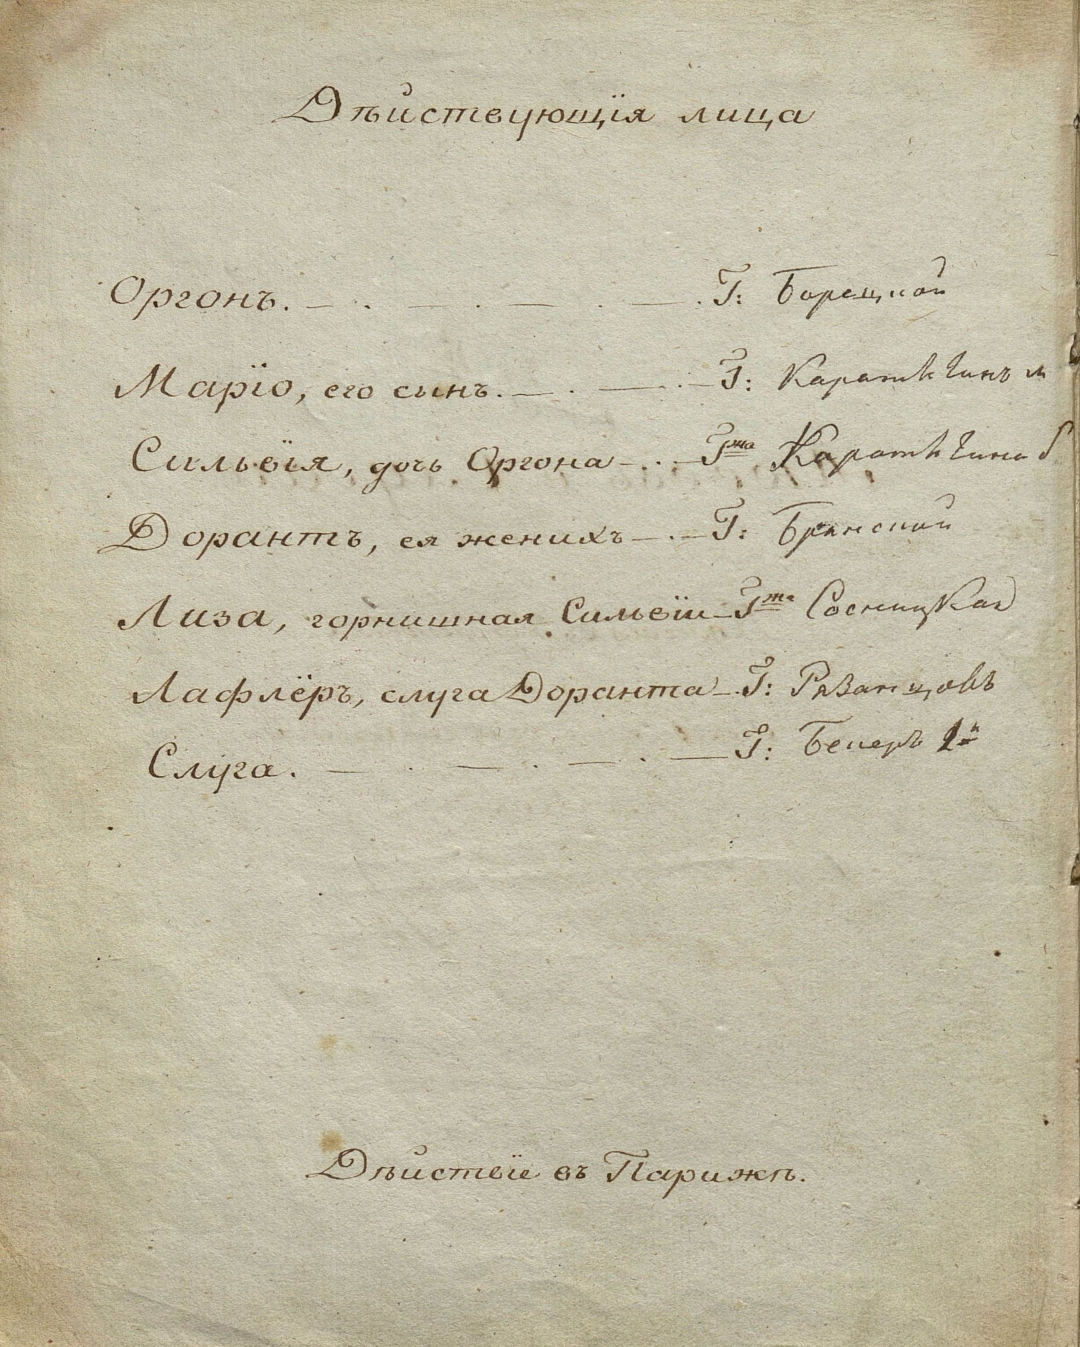 Дѣйствующія лица
Оргонъ. — . — . — . — . Г: Борецкой
Маріо, его сынъ. — . — . — Г: Каратыгинъ м
Сильвія, дочь Оргона — . — Гжа Каратыгина б
Дорантъ, ея женихъ — . — Г: Брянской
Лиза, горнишная Сильвіи — Гжа Сосницкая
Лафлёръ, слуга Доранта — . Г: Рязанцовъ
Слуга. — . — . — . — Г: Бекеръ 1й
Дѣйствіе въ Парижѣ.